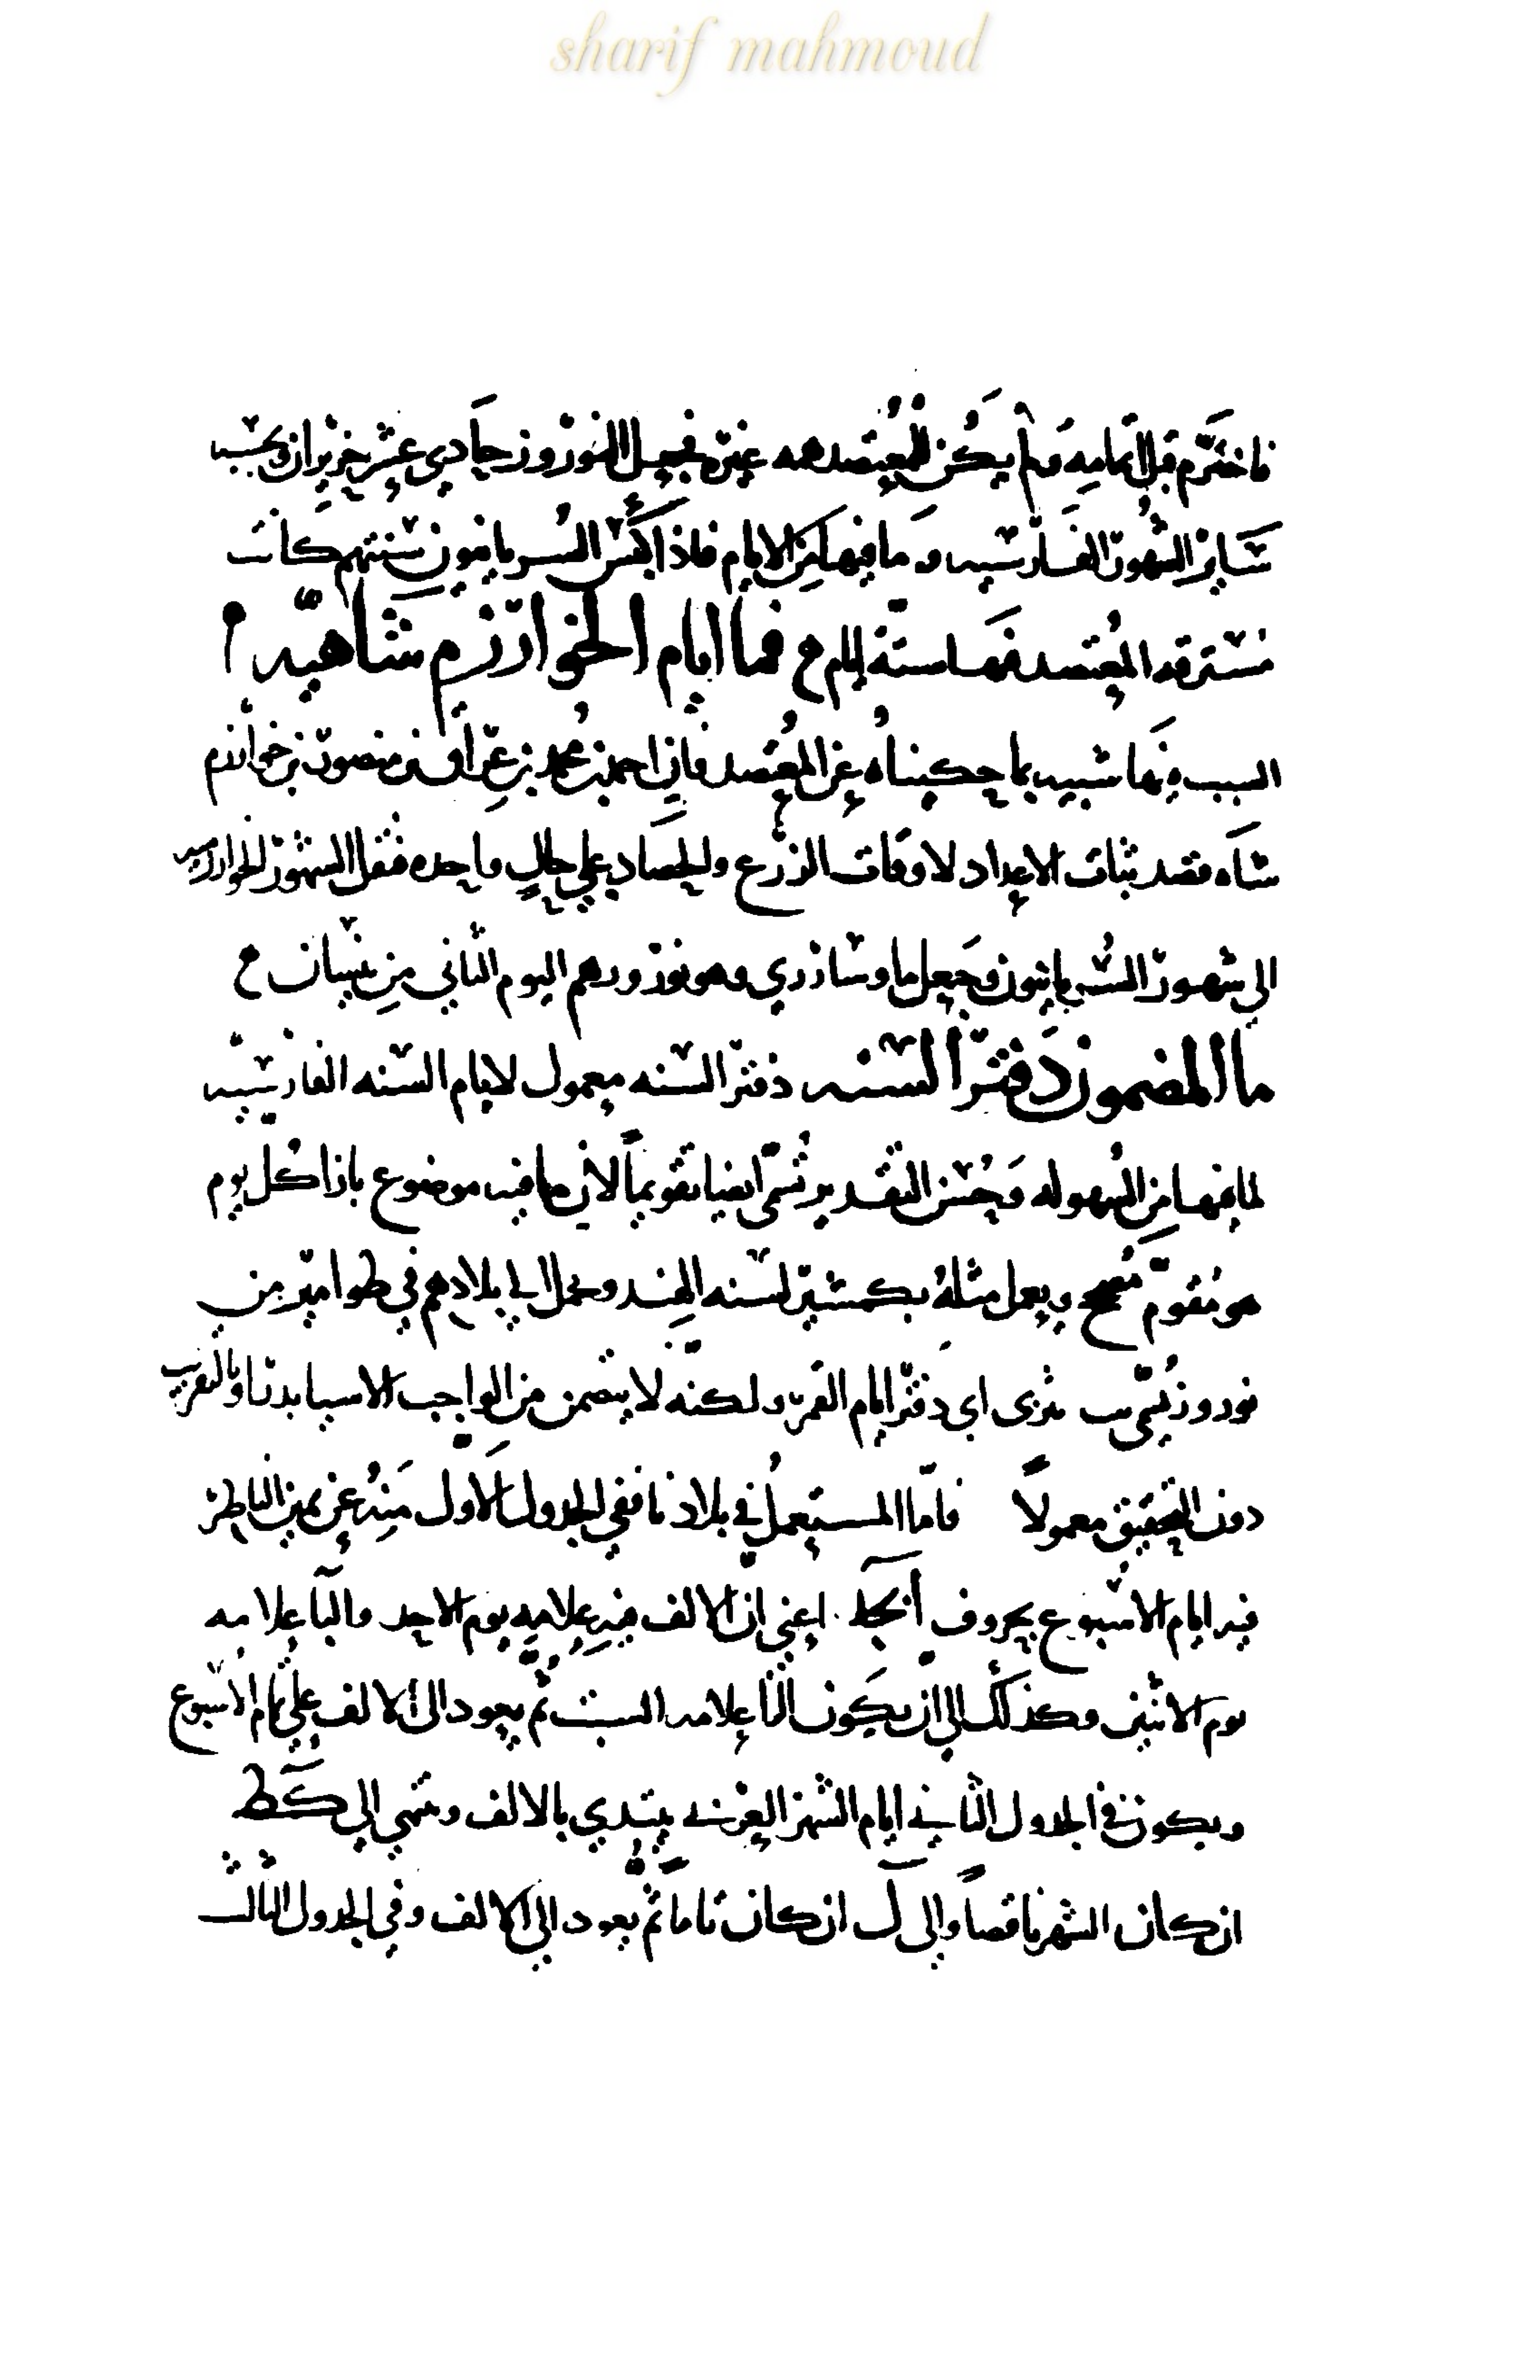 sharif mahmoud
فاختُرم قبل اتمامه ولم يكن للمعتضد همه غيره فجعل النوروز حادي عشر حزيران وبحسبه
سائر الشهور الفارسيه وما فيها من الايام فاذا كبس السريانيون سنتهم كانت
مسترقه المعتضد فيها ستة ايام ح فما ايام الخوارزم شاهيّه ه
السبب فيها شبيه بما حكيناه عن المعتضد فان احمد بن محمد بن عراق بن منصور بن خوارزم
شاه قصد ثبات الاعداد لاوقات الزرع والحصاد علي حال واحده فنقل الشهور الخوارزميه
الي شهور السريانيون وجعل ما وسازري وهو نوروزهم اليوم الثاني من نيسان ح
ما المضمون دفتر السنه دفتر السنه معمول لايام السنه الفارسيه
لما فيها من السهوله وحسن التقدير تُسمّى ايضا تقويماً لان ما فيه موضوع بازا كل يوم
هو مُقوّم مُصحح ويعمل مثلهُ بكشمير لسنه الهند ويحمل الي بلادهم في طوامير من
نور وز يُسمى تتري اي دفتر ايام القمر ولكنه لا يتضمن من الواجب الاسيا بدنا وبالتقريب
دون التحقيق معمولاً فامّا المستعمل في بلادنا ففي الجدول الاول منه عن يمين الناظر
فيه ايام الاسبوع بحروف أبجد اعني ان الالف فيه علامه يوم الاحد والبا علامه
يوم الاثنين وكذلك الي ان يكون الزا علامه السبت ثم يعود الى الالف علي تمام الاسبوع
ويكون في الجدول الثاني ايام الشهر العربي يبتدي بالالف وينتهي الي كط
ان كان الشهر ناقصاً والي ل ان كان تاما ثم يعود الي الالف وفي الجدول الثالث